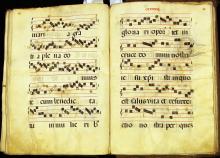 mari a gra
a ple na do
minus
te cum benedic ta
tu in mu lie rib
gloria ri opor tet in
cruce do mini nostri
ie su xpi
est salus vita et resurre
ctio nostra per ques